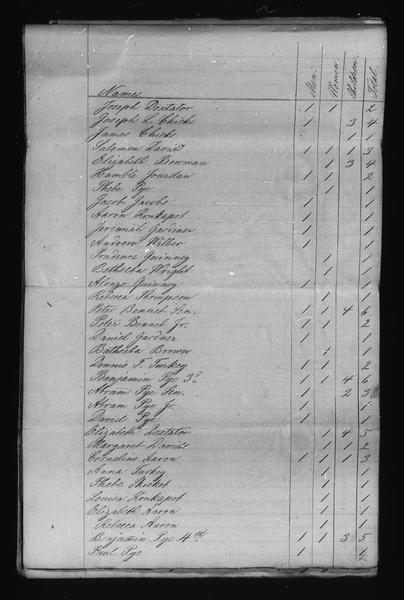 Names Men. Women Children Total.
Joseph Doxtator 1 1 2
Joseph L. Chicks 1 3 4
James Chicks 1 1
Salomon David 1 1 1 3
Elizabeth Bowman 1 3 4
Hamble Jourdan 1 1 2
Phebe Pye 1 1
Jacob Jacobs 1 1
Aaron Konkapot 1 1
Jeremiah Gardiner 1 1
Andrew Wilber 1 1
Prudence Quinney 1 1
Bethseba Wright 1 1
Alonzo Quinney 1 1
Rebecca Thompson 1 1
Peter Bennet Sen. 1 1 4 6
Peter Bennet Jr. 1 1 2
Daniel Gardner 1 1
Bathseba Brown 1 1
Dennis T. Turkey 1 1 2
Benjamin Pye 3d 1 1 4 6
Abram Pye Sen. 1 2 3
Abram Pye Jr. 1 1
David Pye 1 1
Elizabeth Doxtator 1 4 5
Margaret Davids 1 1 2
Cornelius Aaron 1 1 1 3
Anna Turkey 1 1
Phebe Skicket 1 1
Louisa Konkapot 1 1
Elizabeth Aaron 1 1
Rebecca Aaron 1 1
Benjamin Pye 4th 1 1 3 5
Paul Pye 1 1